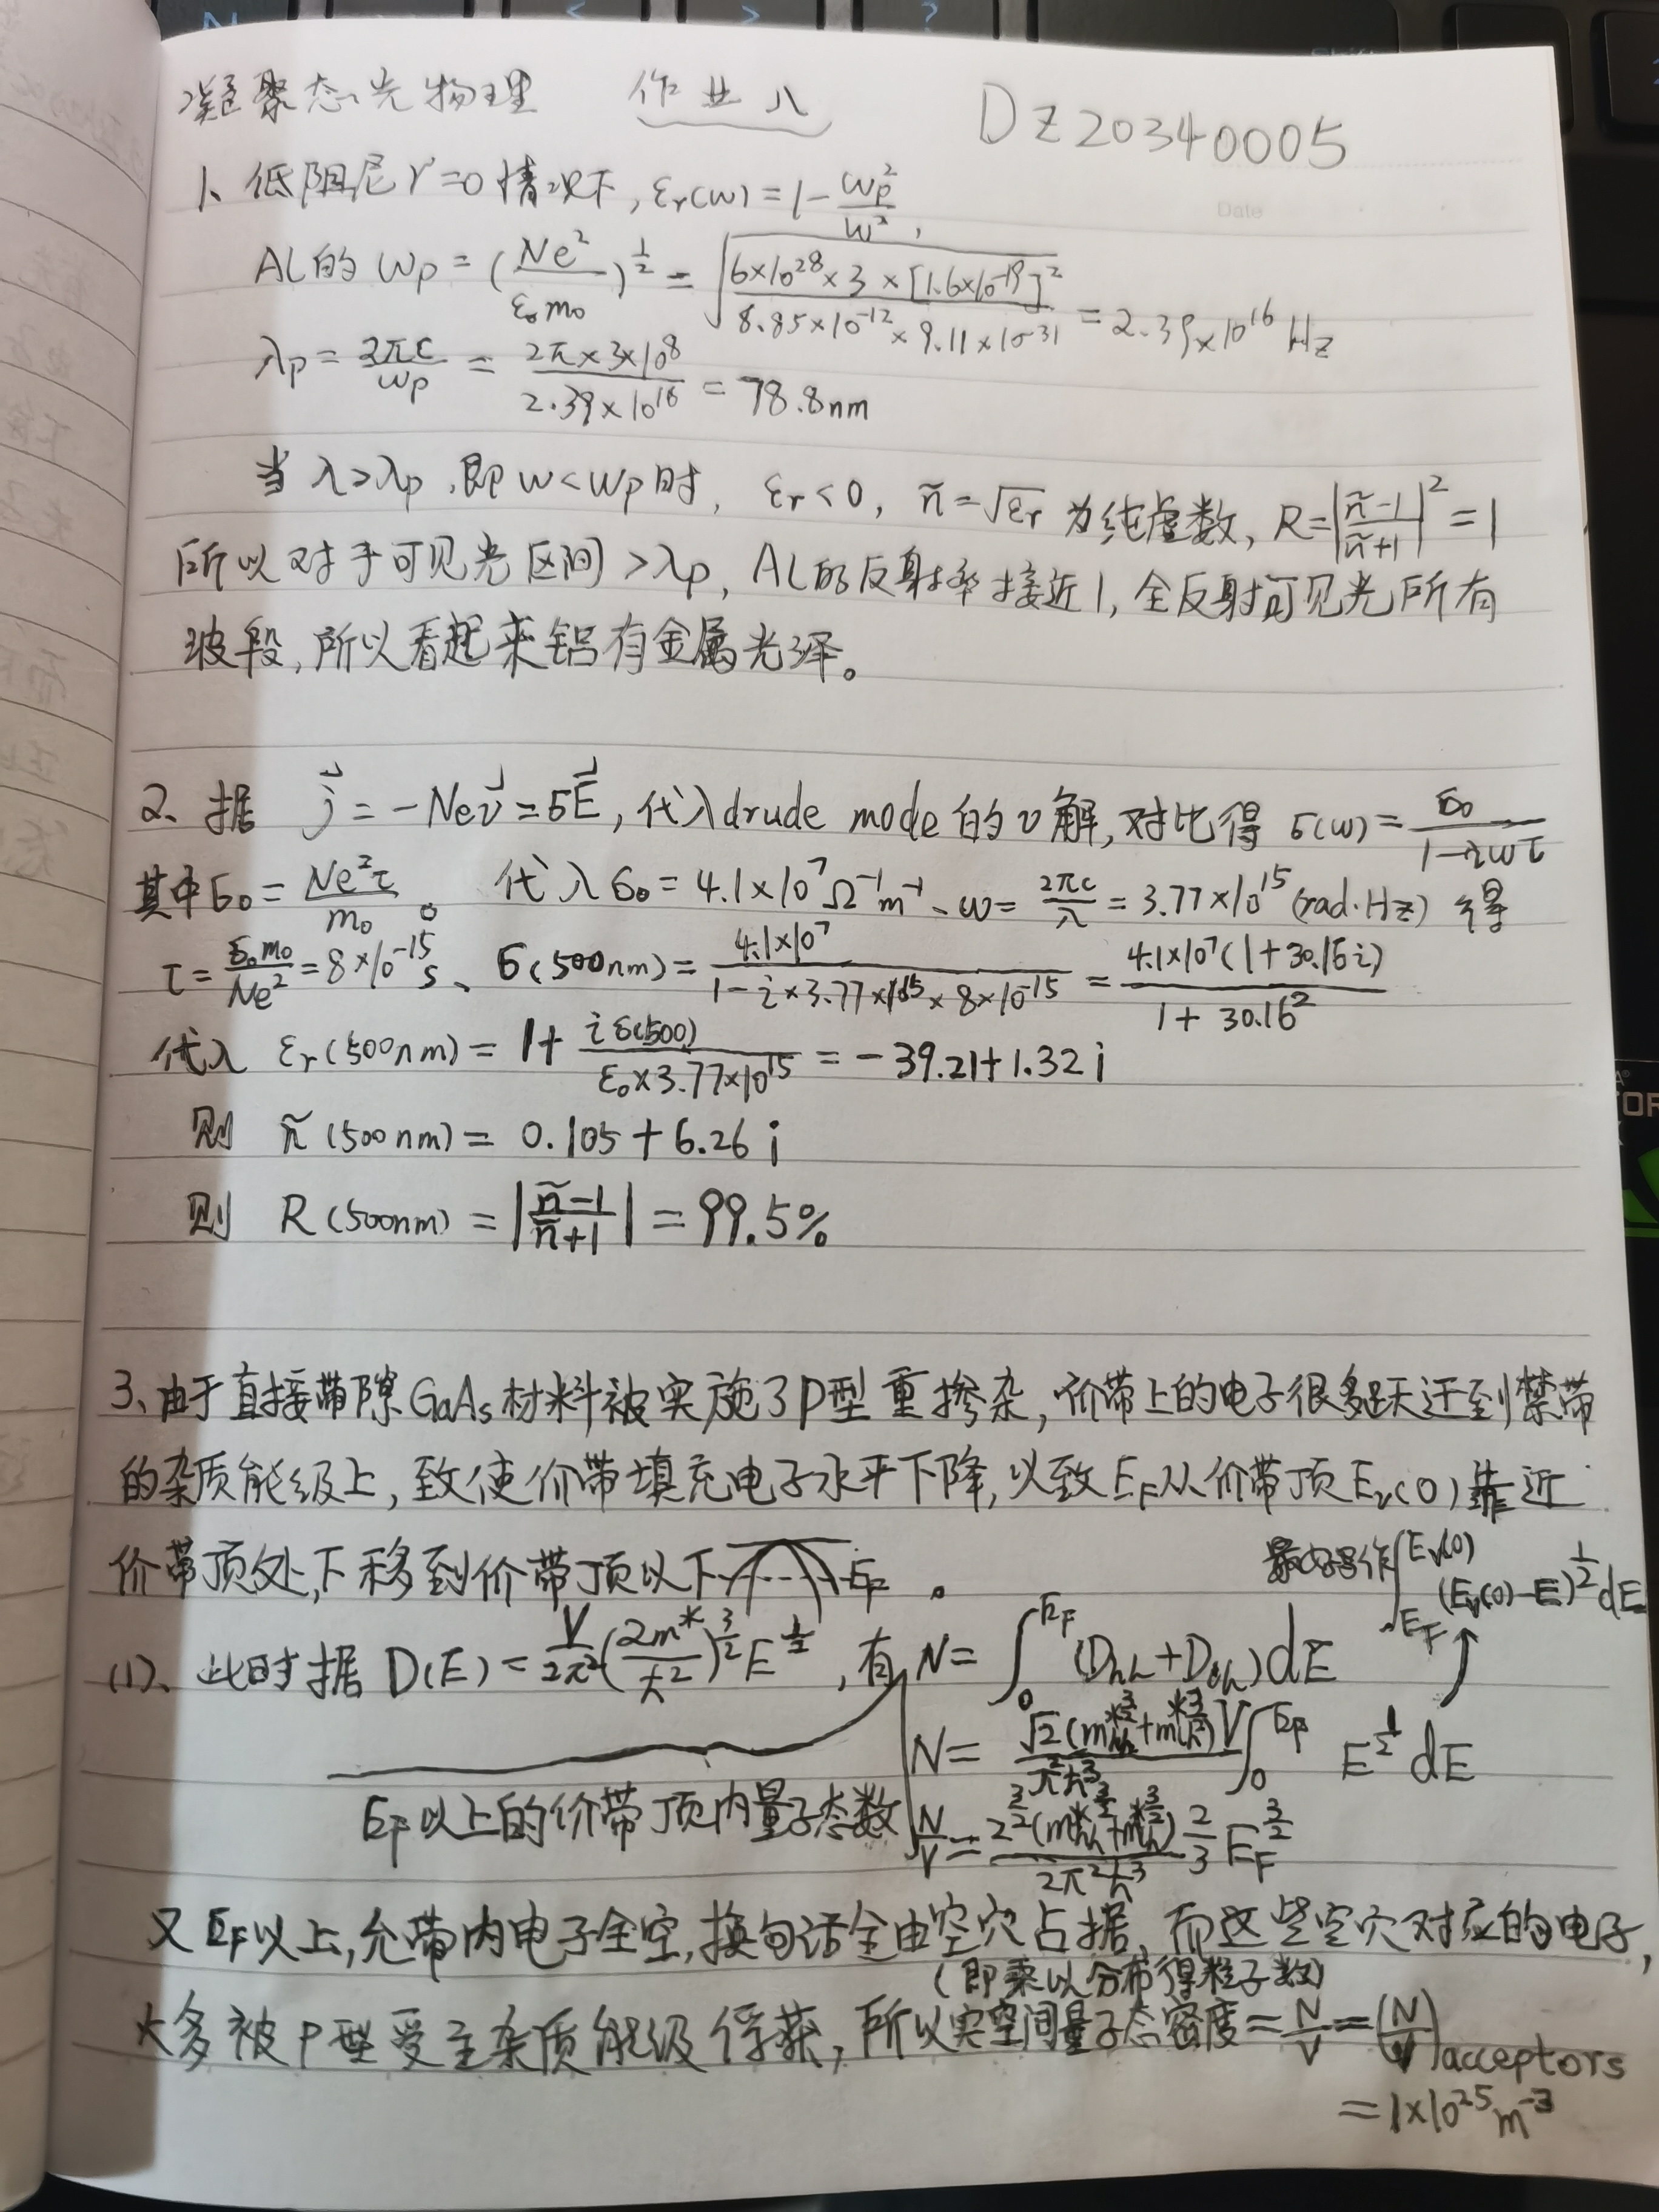 凝聚态光物理 作业八 DZ20340005
Date
1、低阻尼 γ=0 情况下, εr(ω) = 1 - ωp²/ω²,
AL的 ωp = (Ne²/ε₀m₀)^½ = √(6×10²⁸×3×[1.6×10⁻¹⁹]²/8.85×10⁻¹²×9.11×10⁻³¹) = 2.39×10¹⁶ Hz
λp = 2πc/ωp = 2π×3×10⁸/2.39×10¹⁶ = 78.8nm
当 λ>λp, 即 ω<ωp 时, εr<0, ñ=√εr 为纯虚数, R=|ñ-1/ñ+1|²=1
所以对于可见光区间>λp, AL的反射率接近1, 全反射可见光所有
波段, 所以看起来铝有金属光泽。
2、据 j⃗ = -Nev⃗ = σE⃗, 代入drude mode的v解, 对比得 σ(ω) = σ₀/1-iωτ
其中σ₀ = Ne²τ/m₀。 代入σ₀ = 4.1×10⁷Ω⁻¹m⁻¹、ω = 2πc/λ = 3.77×10¹⁵(rad·Hz) 得
τ = σ₀m₀/Ne² = 8×10⁻¹⁵s、σ(500nm) = 4.1×10⁷/1-i×3.77×10¹⁵×8×10⁻¹⁵ = 4.1×10⁷(1+30.16i)/1+30.16²
代入 εr(500nm) = 1+ iσ(500)/ε₀×3.77×10¹⁵ = -39.21+1.32i
则 ñ(500nm) = 0.105+6.26i
则 R(500nm) = |ñ-1/ñ+1| = 99.5%
3、由于直接带隙GaAs材料被实施了P型重掺杂, 价带上的电子很多跃迁到禁带
的杂质能级上, 致使价带填充电子水平下降, 以致EF从价带顶Ev(0)靠近
价带顶处, 下移到价带顶以下 EF 。 最好写作∫_EF^Ev(0) (Ev(0)-E)^½dE
(1)、此时据 D(E) = V/2π²(2m*/ħ²)^3/2 E^½, 有 N = ∫₀^EF (Dhh+Dlh)dE
N = √2(m*hh^3/2+m*lh^3/2)V/π²ħ³ ∫₀^EF E^½ dE
EF以上的价带顶内量子态数 N/V = 2^3/2(m*hh^3/2+m*lh^3/2)/2π²ħ³ 2/3 EF^3/2
又EF以上, 允带内电子全空, 换句话全由空穴占据, 而这些空穴对应的电子,
(即乘以分布得粒子数)
大多被P型受主杂质能级俘获, 所以实空间量子态密度 = N/V = (N/V)acceptors
= 1×10²⁵m⁻³